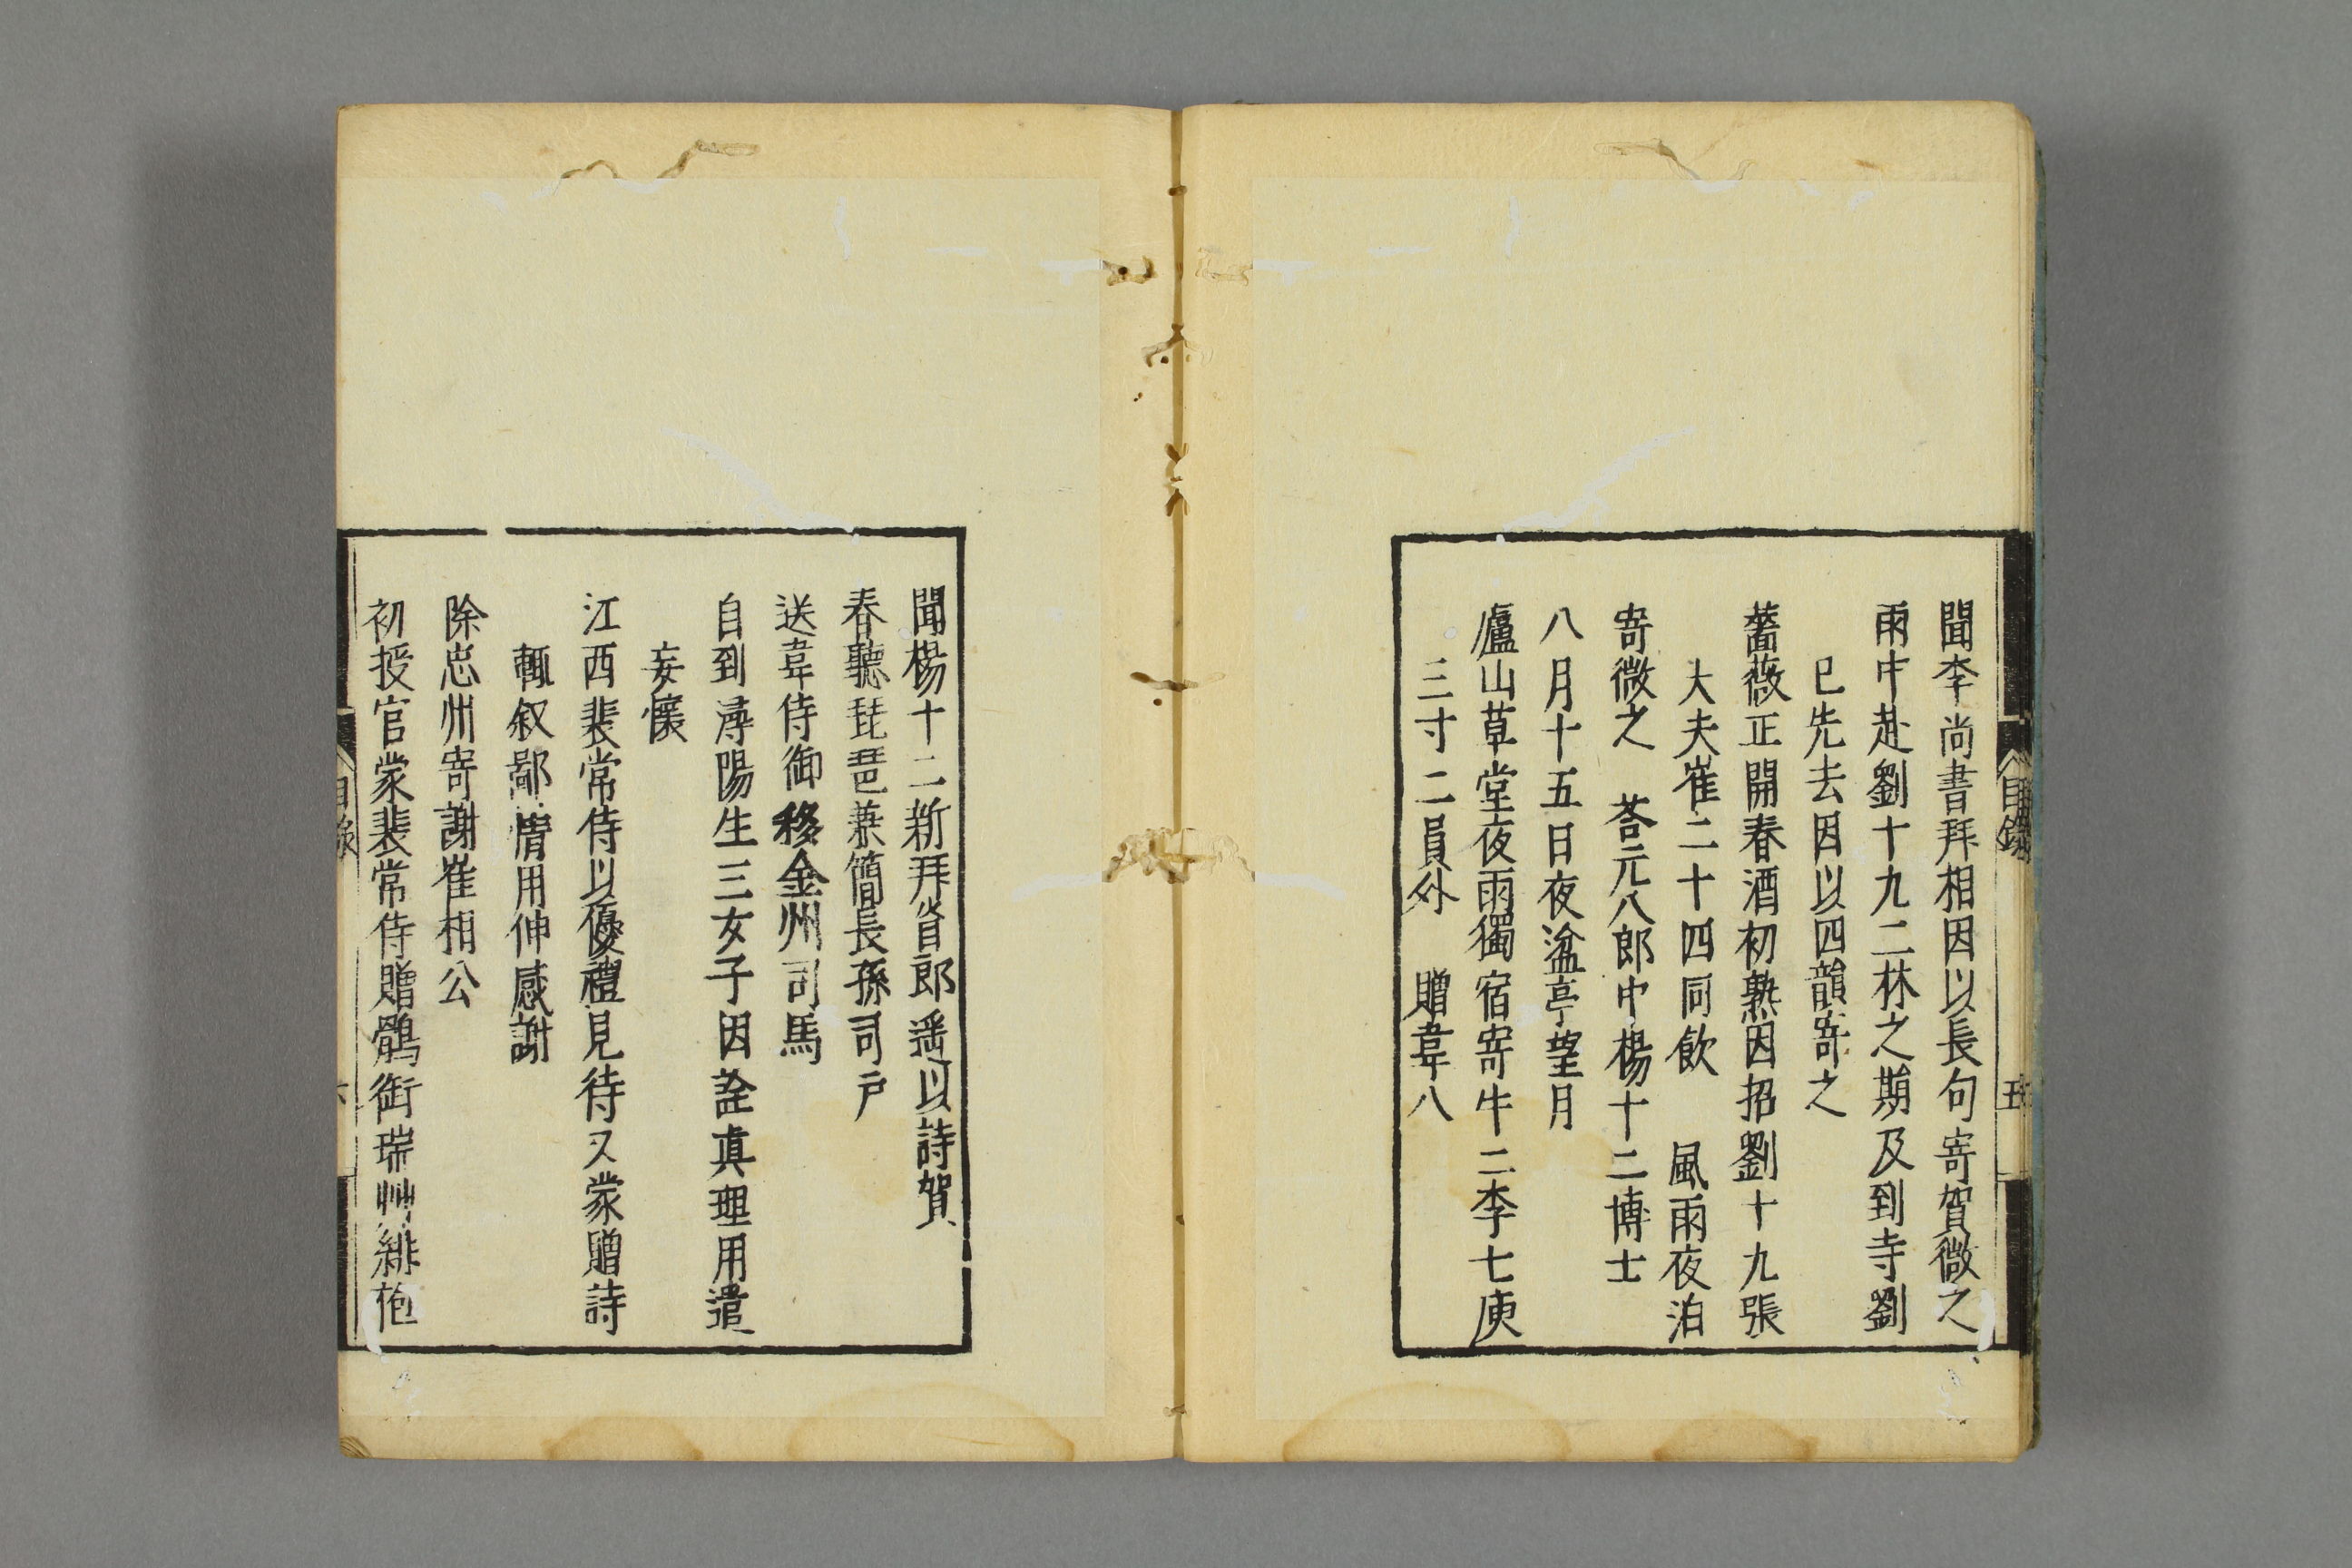 聞李尚書拜相因以長句寄賀微之
雨中赴劉十九二林之期及到寺劉
已先去因以四韻寄之
薔薇正開春酒初熟因招劉十九張
大夫崔二十四同飲　風雨夜泊
寄微之　荅元八郎中楊十二博士
八月十五日夜湓亭望月
廬山草堂夜雨獨宿寄牛二李七庾
三寸二員外　贈韋八
目錄
五
聞楊十二新拜省郎遥以詩賀
春聽琵琶蒹簡長孫司戶
送韋侍御移金州司馬
自到潯陽生三女子因詮真理用遣
妄懷
江西裴常侍以優禮見待又蒙贈詩
輒叙鄙情用伸感謝
除忠州寄謝崔相公
初授官蒙裴常侍贈鶻銜瑞艸緋袍
目錄
六